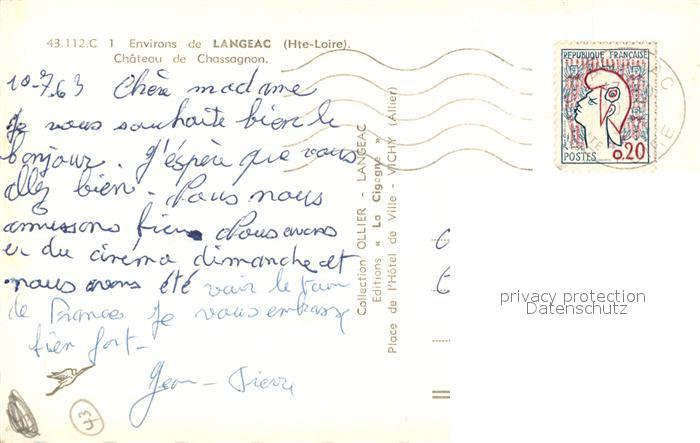 43.112.C 1 Environs de LANGEAC (Hte-Loire).
Château de Chassagnon.
10-7.63 Chère madame
Je vous souhaite bien le
bonjour. J'éspère que vous
allez bien. Nous nous
amusons bien. Nous avons
eu du cinéma dimanche et
nous avons été voir le tour
de France. Je vous embrasse
bien fort-
Jean-Pierre
43
Collection OLLIER - LANGEAC
Editions « La Cigogne »
Place de l'Hôtel de Ville - VICHY (Allier)
REPUBLIQUE FRANÇAISE
POSTES 0,20
privacy protection
Datenschutz